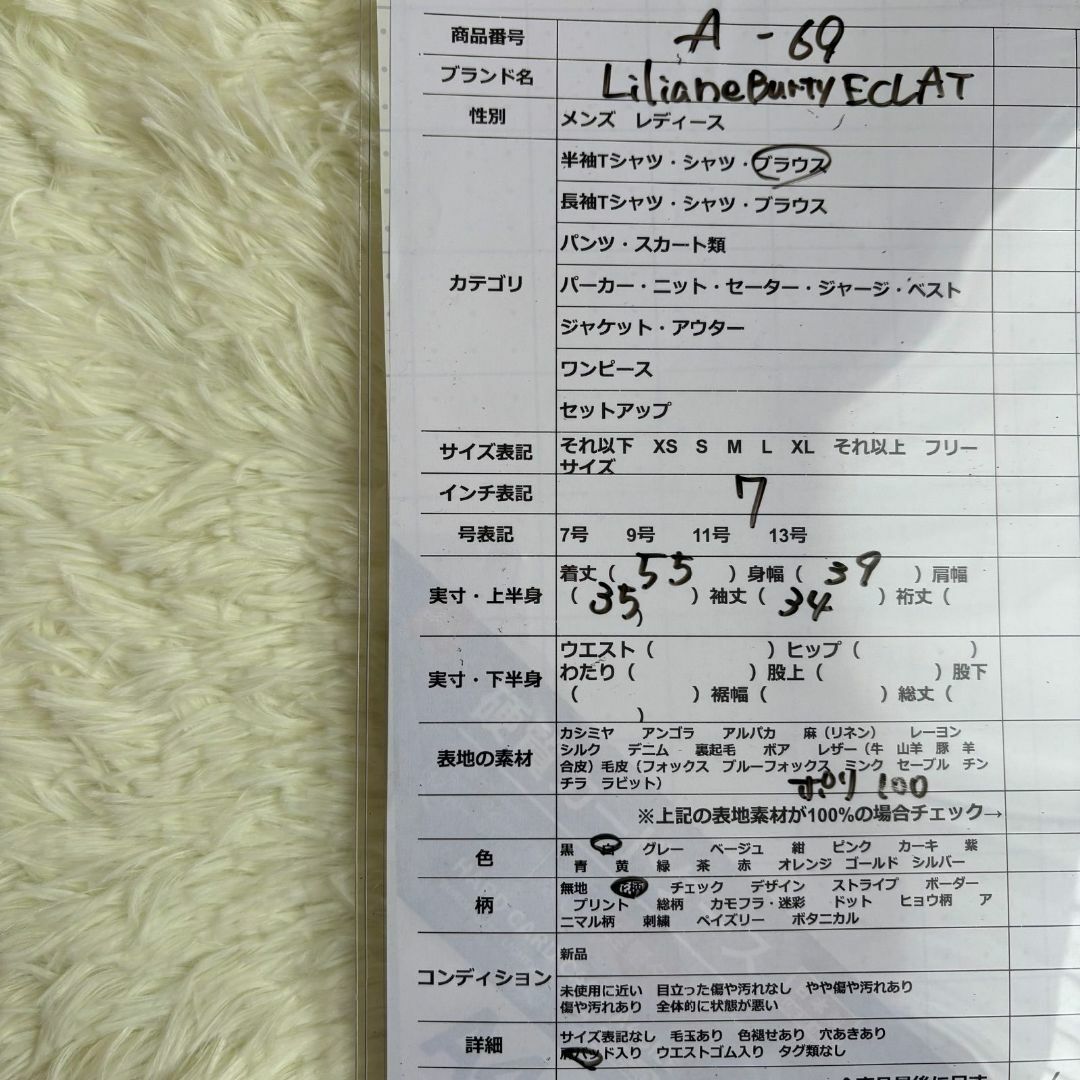 商品番号 A-69
ブランド名 LilianeBurty ECLAT
性別 メンズ レディース
カテゴリ
半袖Tシャツ・シャツ・ブラウス
長袖Tシャツ・シャツ・ブラウス
パンツ・スカート類
パーカー・ニット・セーター・ジャージ・ベスト
ジャケット・アウター
ワンピース
セットアップ
サイズ表記 それ以下 XS S M L XL それ以上 フリー
サイズ
インチ表記 7
号表記 7号 9号 11号 13号
実寸・上半身 着丈( 55 )身幅( 39 )肩幅
( 35 )袖丈( 34 )裄丈(
)
実寸・下半身 ウエスト( )ヒップ( )
わたり( )股上( )股下
( )裾幅( )総丈(
)
表地の素材 カシミヤ アンゴラ アルパカ 麻(リネン) レーヨン
シルク デニム 裏起毛 ボア レザー(牛 山羊 豚 羊
合皮)毛皮(フォックス ブルーフォックス ミンク セーブル チン
チラ ラビット) ポリ 100
※上記の表地素材が100%の場合チェック→
色 黒 白 グレー ベージュ 紺 ピンク カーキ 紫
青 黄 緑 茶 赤 オレンジ ゴールド シルバー
柄 無地 花柄 チェック デザイン ストライプ ボーダー
プリント 総柄 カモフラ・迷彩 ドット ヒョウ柄 ア
ニマル柄 刺繍 ペイズリー ボタニカル
コンディション 新品
未使用に近い 目立った傷や汚れなし やや傷や汚れあり
傷や汚れあり 全体的に状態が悪い
詳細 サイズ表記なし 毛玉あり 色褪せあり 穴あきあり
肩パッド入り ウエストゴム入り タグ類なし